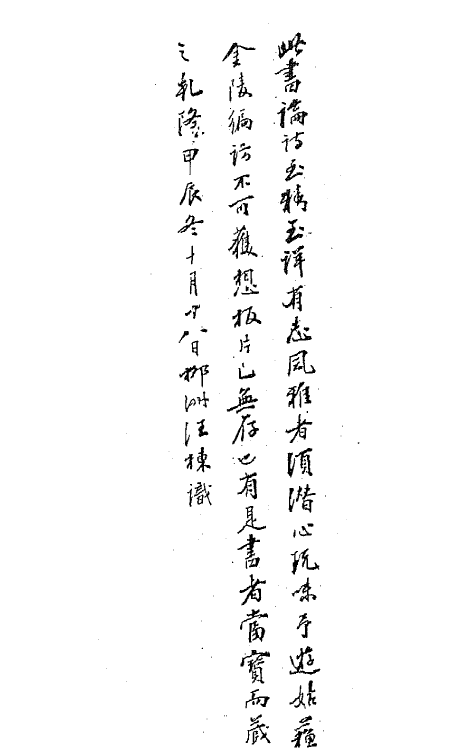 此書論詩至精至詳有志風雅者須潛心玩味予遊姑蘇
金陵徧訪不可獲想板片已無存也有是書者當寶而藏
之乾隆甲辰冬十月廿八日柳洲汪棟識